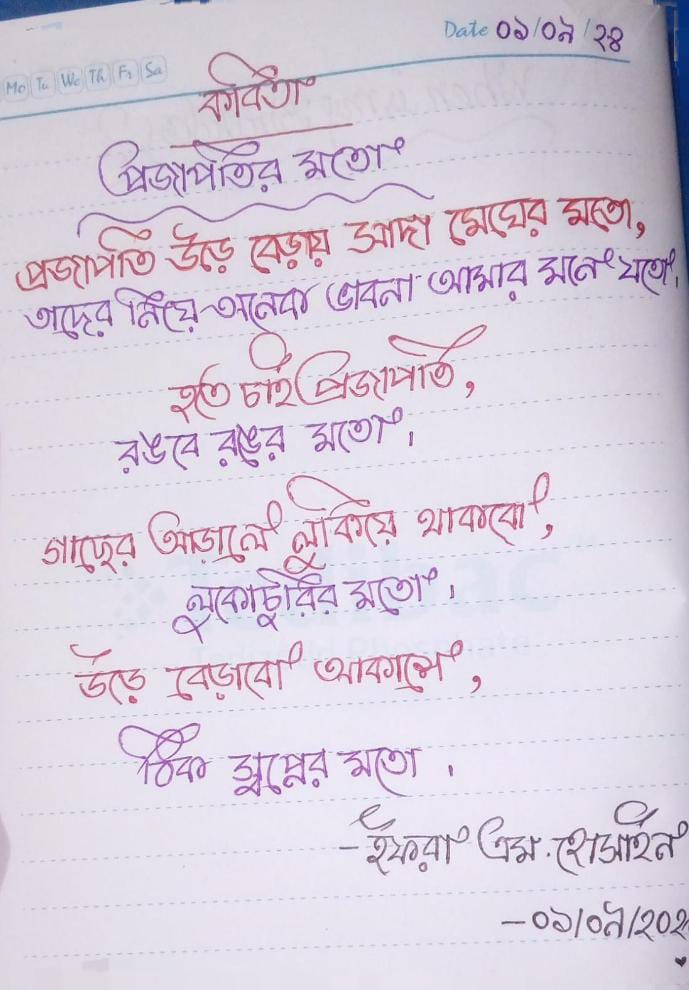 Date ০১/০৯/২৪
Mo Tu We Th Fr Sa
কবিতা
প্রজাপতির মতো
প্রজাপতি উড়ে বেড়ায় সাদা মেঘের মতো,
তাদের নিয়ে অনেক ভাবনা আমার মনে যতো।
হতে চাই প্রজাপতি,
রঙবে রঙের মতো।
গাছের আড়ালে লুকিয়ে থাকবো,
লুকোচুরির মতো।
উড়ে বেড়াবো আকাশে,
ঠিক স্বপ্নের মতো।
- ইফরা এম. হোসাইন
- ০১/০৯/২০২